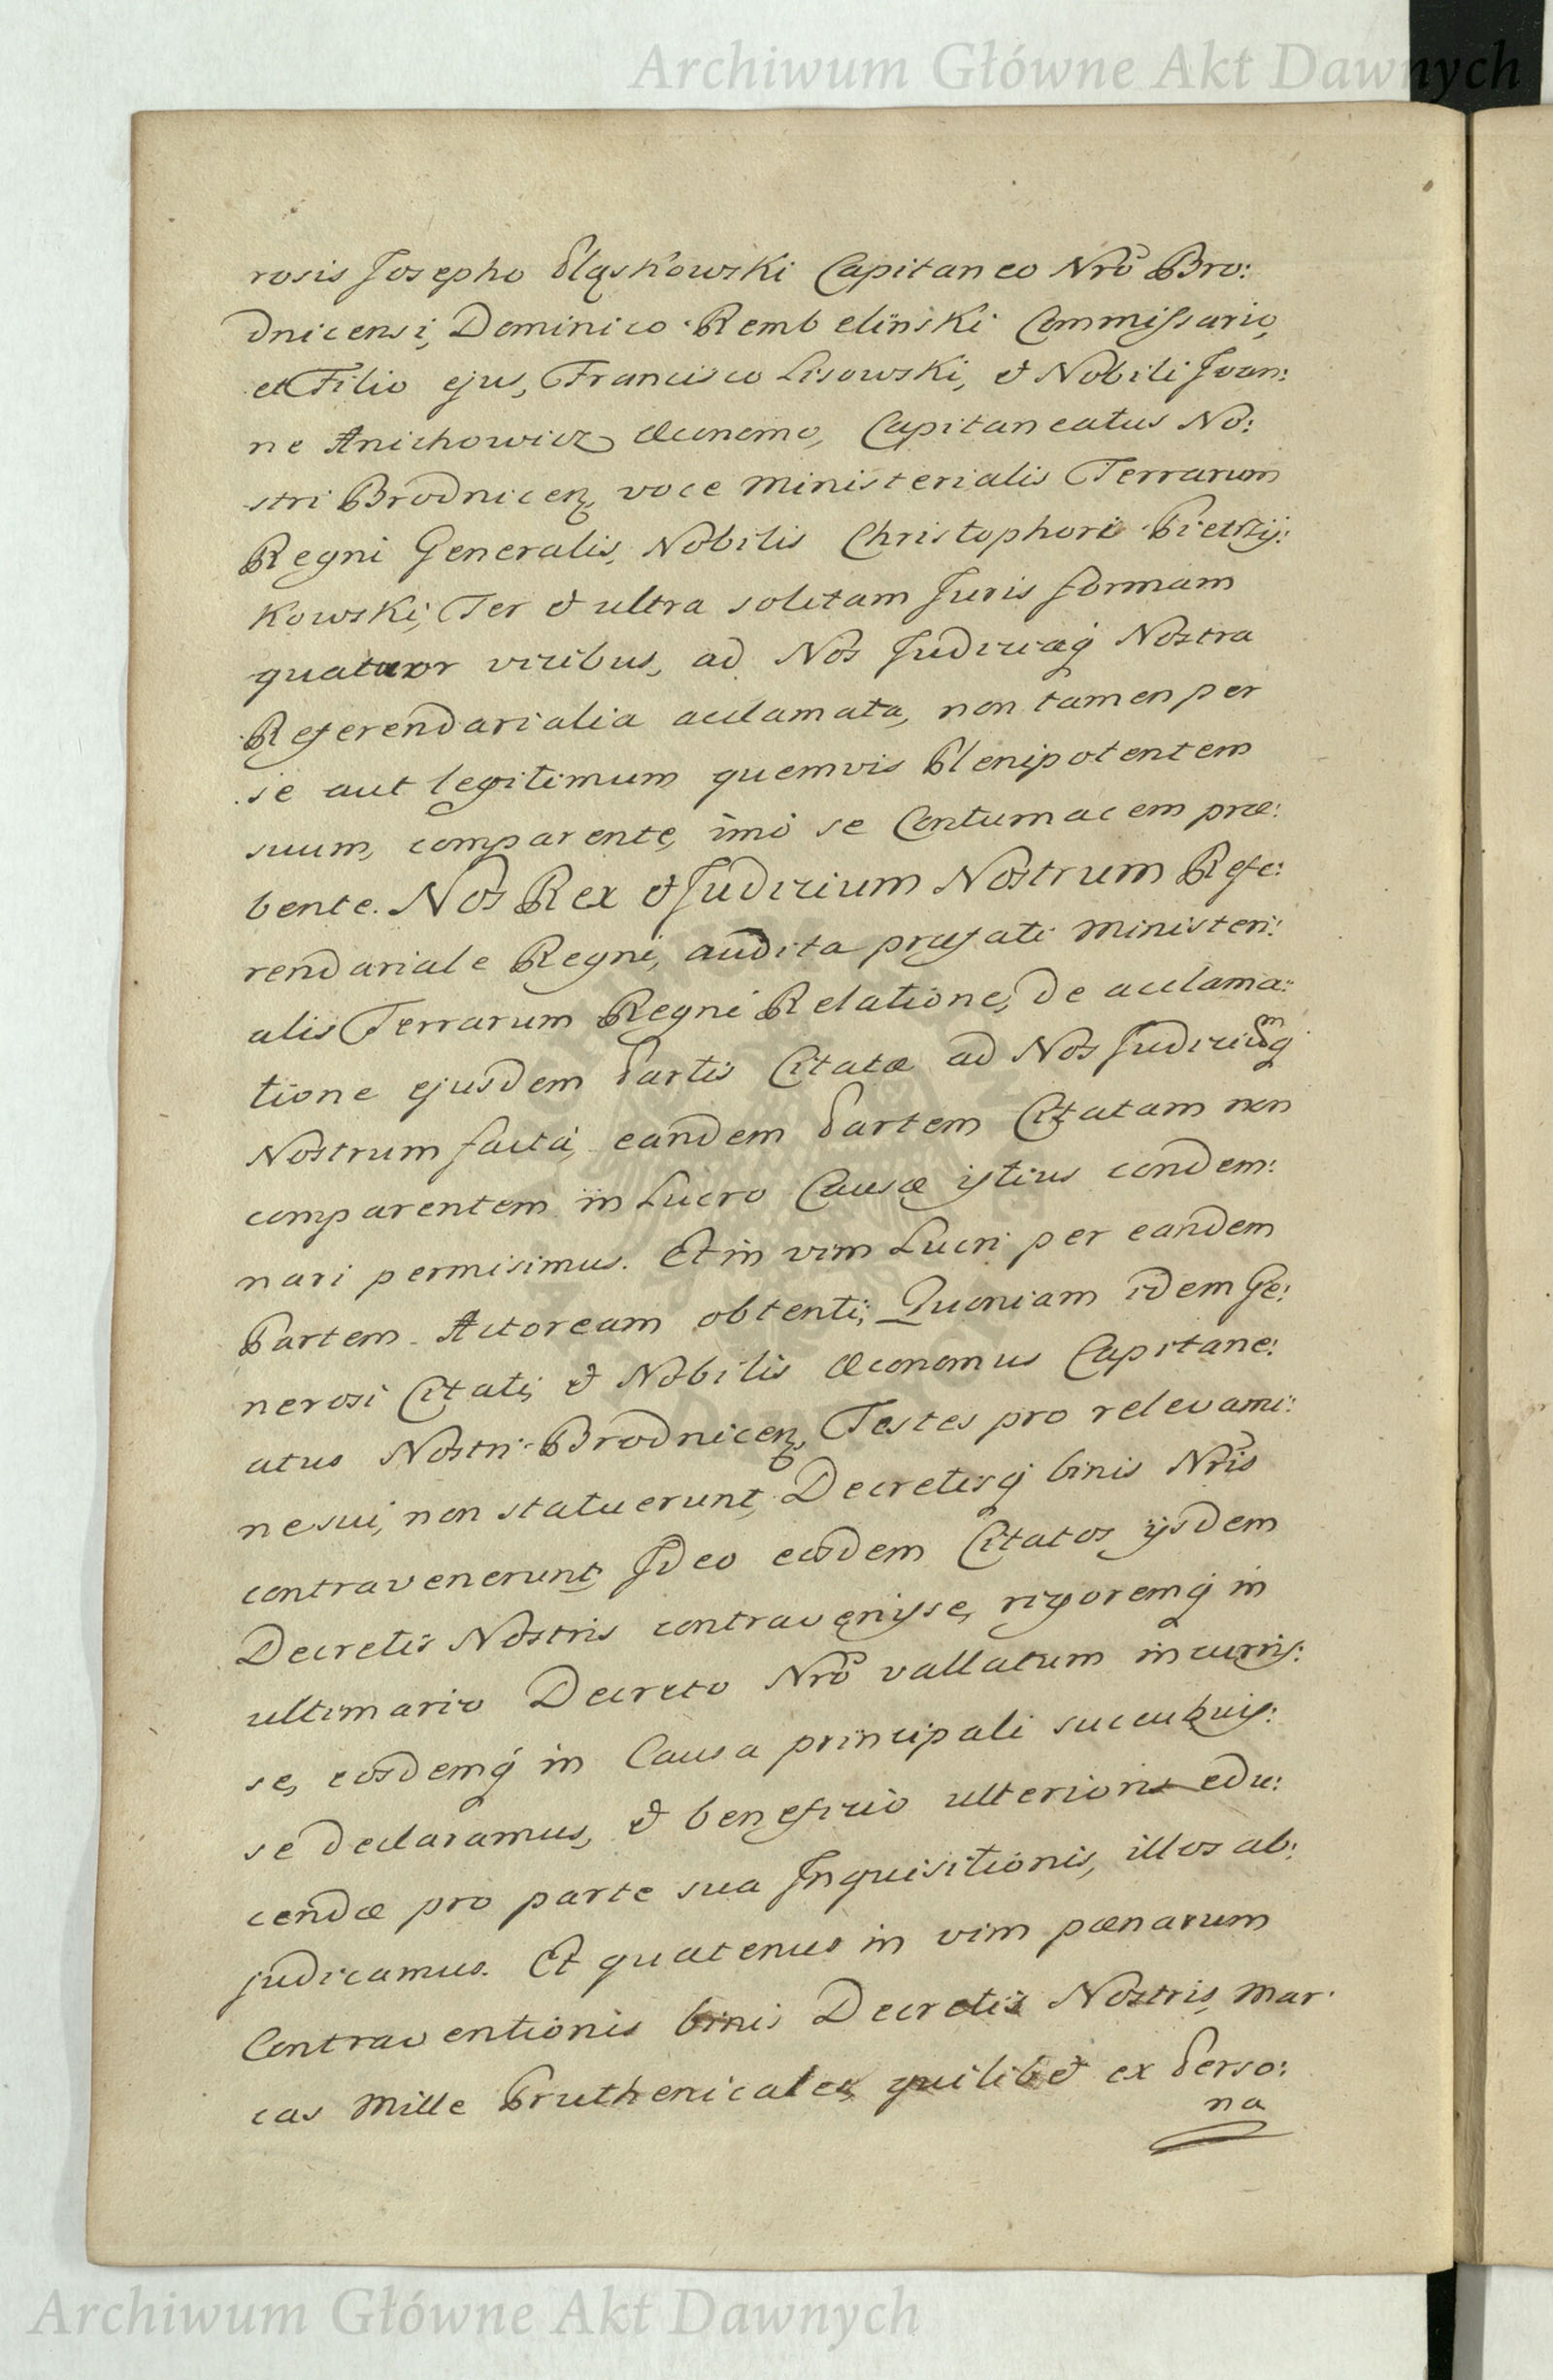 Archiwum Główne Akt Dawnych
rosis Josepho Pląskowski Capitaneo Nrõ Bro:
dnicensi, Dominico Rembeliński Commissario,
et Filio ejus, Francisco Lisowski, & Nobili Joan:
ne Anichowicz Œconomo, Capitaneatus No:
stri Brodnicen, voce Ministerialis Terrarum
Regni Generalis, Nobilis Christophori Pietrzy:
kowski, Ter & ultra solitam Juris formam
quatuor vicibus, ad Nos Judiciaq Nostra
Referendarialia acclamata, non tamen per
se aut legitimum quemvis Plenipotentem
suum, comparente, imò se Contumacem præ:
bente. Nos Rex & Judicium Nostrum Refe:
rendariale Regni, audita præfati Ministeri:
alis Terrarum Regni Relatione, de acclama:
tione ejusdem Partis Citatæ ad Nos Judiciumq
Nostrum facta, eandem Partem Citatam non
comparentem in Lucro Causæ istius condem:
nari permisimus. Et in vim Lucri per eandem
Partem Actoream obtenti; Quoniam idem Ge:
nerosi Citati, & Nobilis Œconomus Capitane:
atus Nostri Brodnicen, Testes pro relevami:
ne sui, non statuerunt, Decretisq binis Nrĩs
contravenerunt, Ideo eosdem Citatos ijsdem
Decretis Nostris contravenisse, rigoremq in
ultimario Decreto Nrõ vallatum incurris:
se, eosdemq in Causa principali succubuis:
se declaramus, & beneficio ulterioris edu:
cendæ pro parte sua Inquisitionis, illos ab:
judicamus. Et quatenus in vim pænarum
Contraventionis binis Decretis Nostris, Mar:
cas Mille Pruthenicales quilibet ex Perso:
na
Archiwum Główne Akt Dawnych